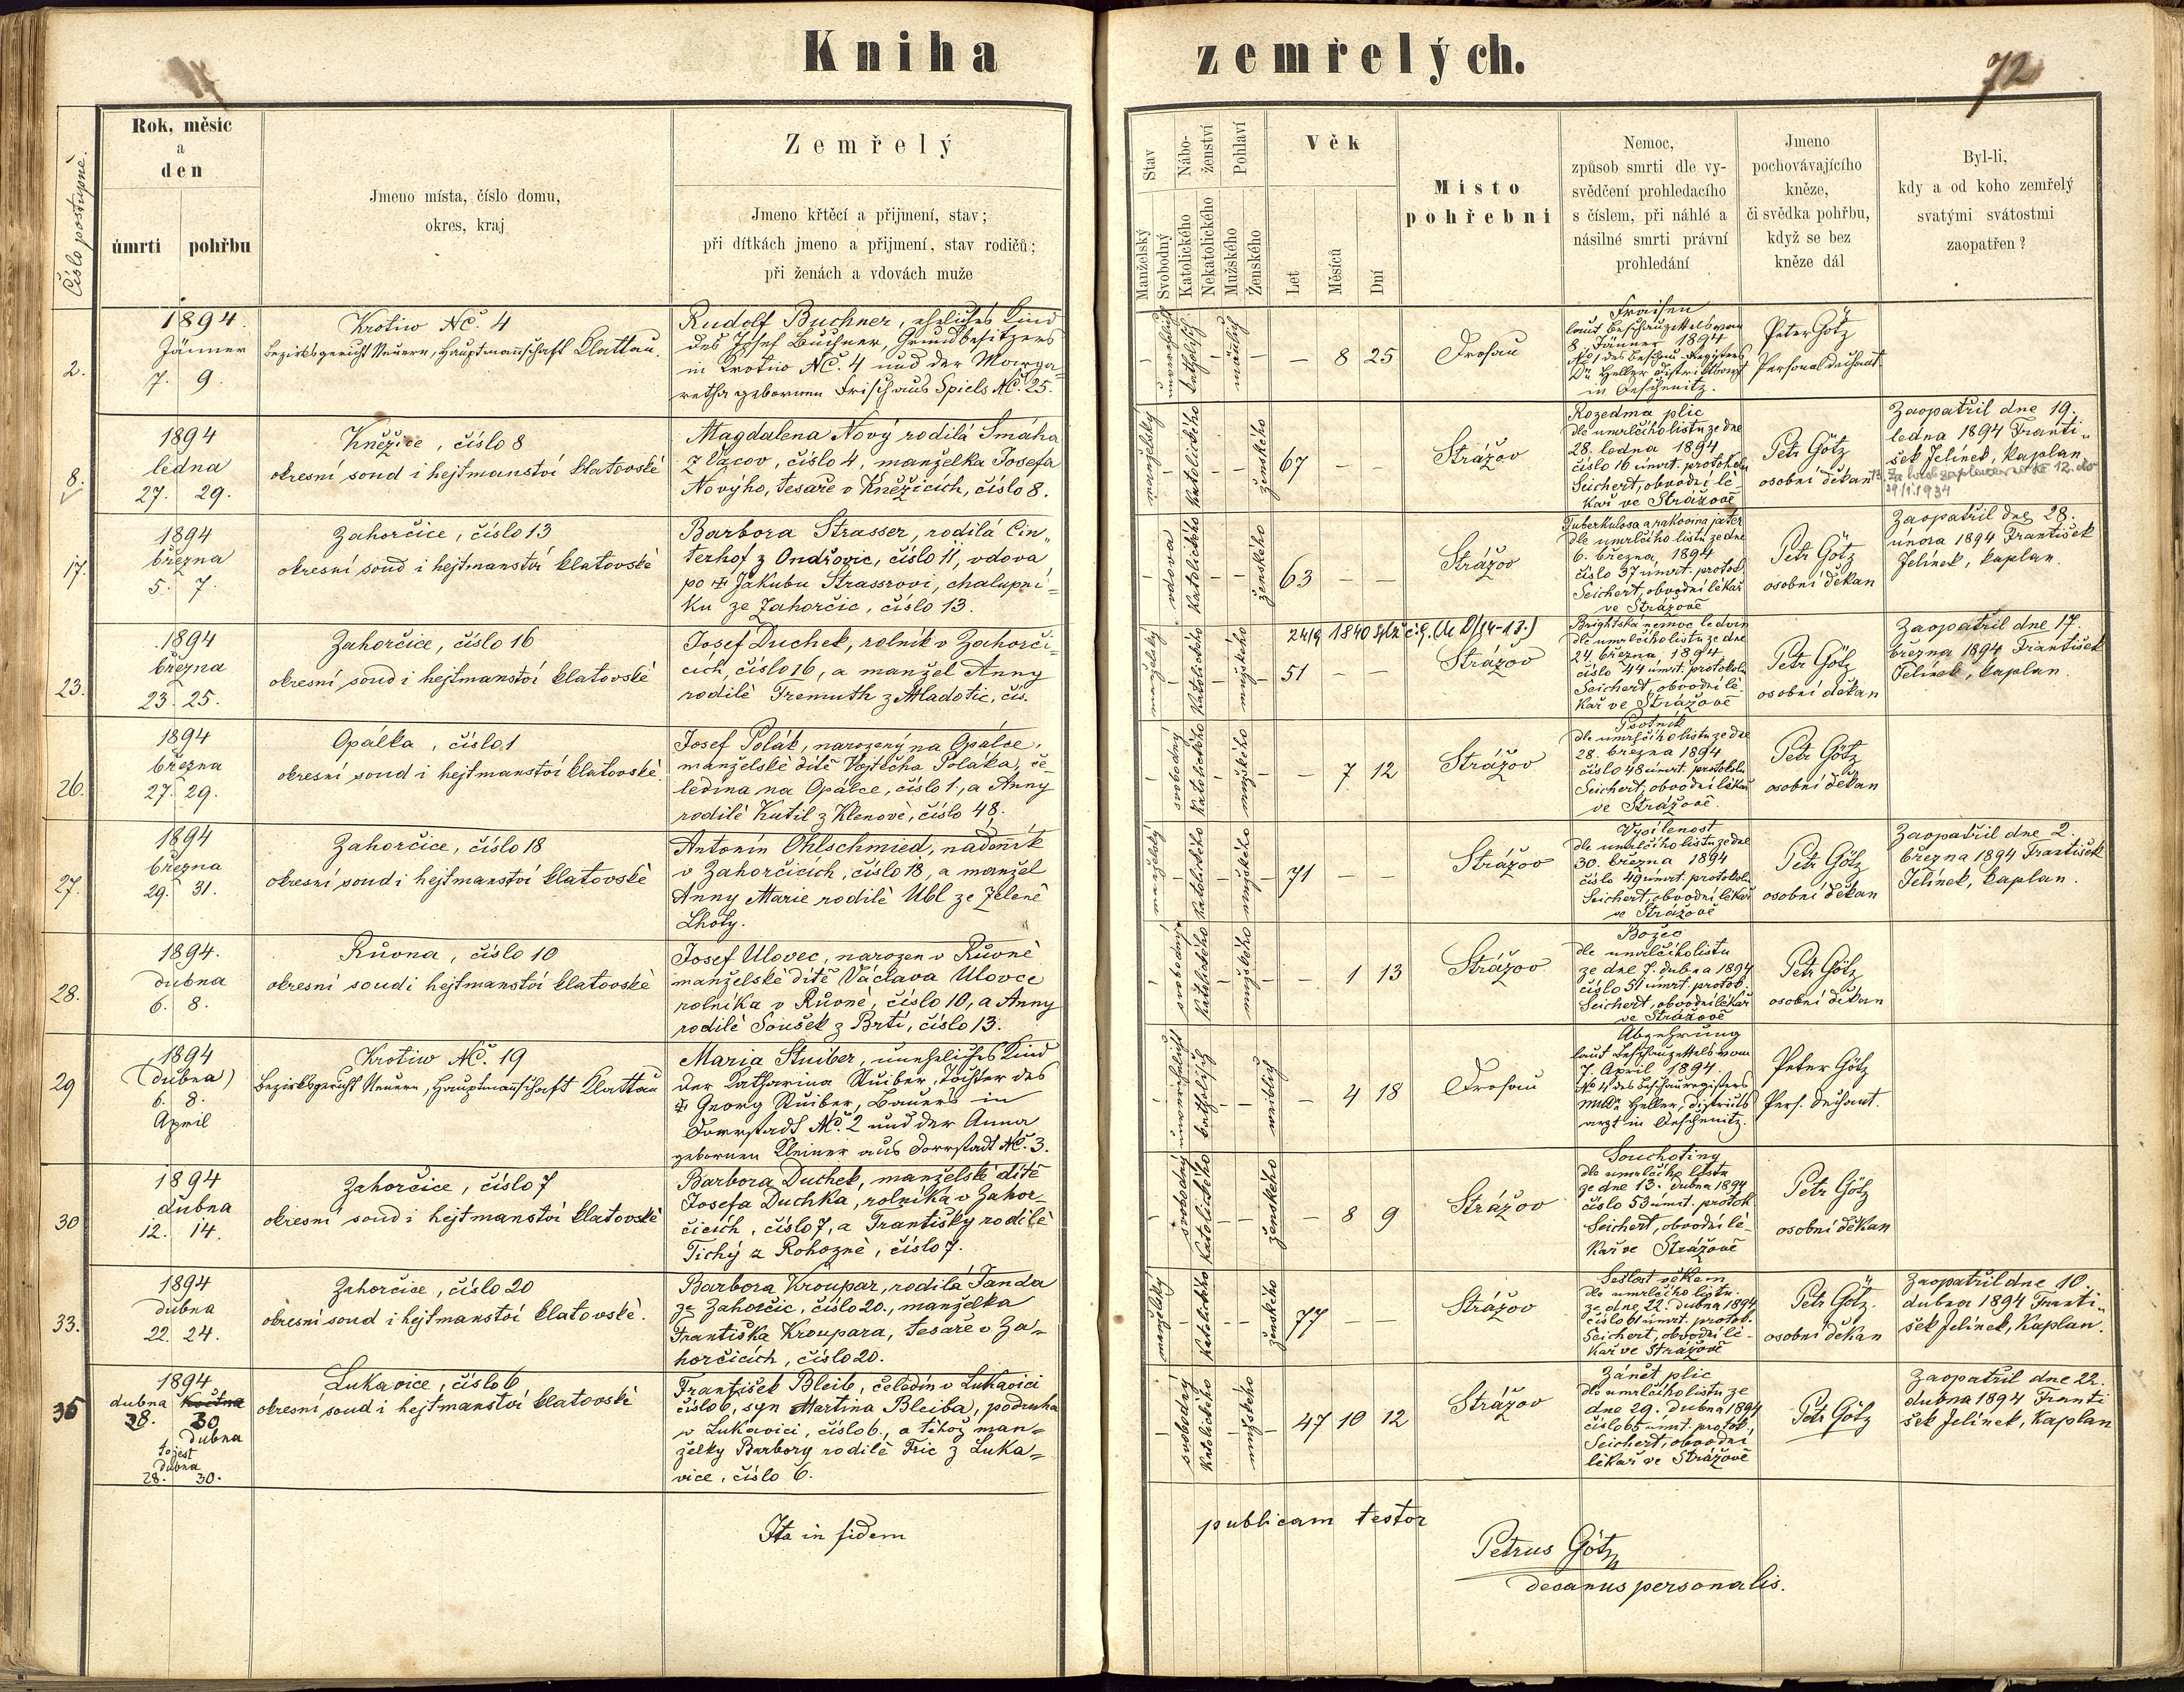 Kniha zemřelých.
72
Číslo postupné.
Rok, měsíc
a
den
úmrtí
pohřbu
Jmeno místa, číslo domu,
okres, kraj
Zemřelý
Jmeno křtěcí a přijmení, stav;
při dítkách jmeno a přijmení, stav rodičů;
při ženách a vdovách muže
Stav
Manželský
Svobodný
Nábo-
ženství
Katolického
Nekatolického
Pohlaví
Mužského
Ženského
Věk
Let
Měsíců
Dní
Místo
pohřební
Nemoc,
způsob smrti dle vy-
svědčení prohledacího
s číslem, při náhlé a
násilné smrti právní
prohledání
Jmeno
pochovávajícího
kněze,
či svědka pohřbu,
když se bez
kněze dál
Byl-li,
kdy a od koho zemřelý
svatými svátostmi
zaopatřen?
2.
1894.
Jänner
7. 9.
Krotiw NČ. 4
Bezirksgericht Neuern, Hauptmannschaft Klattau.
Rudolf Buchner, eheliches Kind
des Josef Buchner, Grundbesitzers
in Krotiw NČ. 4 und der Marga-
retha gebornen Frisch aus Spiels NČ. 25.
katholisch
männlich
– 8 25
Drosau
Fraisen
laut Beschauzettels vom
8. Jänner 1894
No 1 des Beschau-Registers
Dr Heller Distriktsarzt
in Deschenitz.
Peter Götz
Personaldechant.
8.
1894
ledna
27. 29.
Kněžice, číslo 8
okresní soud i hejtmanství klatovské
Magdalena Nový rodilá Smáha
z Vacov, číslo 4, manželka Josefa
Novýho, tesaře v Kněžicích, číslo 8.
manželský
Katolického
ženského
67 – –
Strážov
Rozedma plic
dle umrlčího listu ze dne
28. ledna 1894
číslo 16 úmrt. protokolu
Seichert, obvodní lé-
kař ve Strážově
Petr Götz
osobní děkan
Zaopatřil dne 19.
ledna 1894 Franti-
šek Jelínek, kaplan
17.
1894
března
5. 7.
Zahorčice, číslo 13
okresní soud i hejtmanství klatovské
Barbora Strasser, rodilá Cin-
terhof z Ondřovic, číslo 11, vdova
po ✝ Jakubu Strassrovi, chalupní-
ku ze Zahorčic, číslo 13.
vdova
Katolického
ženského
63 – –
Strážov
Tuberkulosa a rakovina jater
dle umrlčího listu ze dne
6. března 1894
číslo 37 úmrt. protok.
Seichert, obvodní lékař
ve Strážově
Petr Götz
osobní děkan
Zaopatřil dne 28.
února 1894 František
Jelínek, kaplan.
23.
1894
března
23. 25.
Zahorčice, číslo 16
okresní soud i hejtmanství klatovské
Josef Duchek, rolník v Zahorči-
cích, číslo 16, a manžel Anny
rodilé Tremuth z Mladotic, čís.
manželský
Katolického
mužského
24/9 1840
51 – –
Strážov
Brightská nemoc ledvin
dle umrlčího listu ze dne
24. března 1894
číslo 44 úmrt. protokolu
Seichert, obvodní lé-
kař ve Strážově
Petr Götz
osobní děkan
Zaopatřil dne 17.
března 1894 František
Jelínek, kaplan.
26.
1894
března
27. 29.
Opálka, číslo 1
okresní soud i hejtmanství klatovské.
Josef Polák, narozený na Opálce,
manželské dítě Vojtěcha Poláka, če-
ledína na Opálce, číslo 1., a Anny
rodilé Kutil z Klenové, číslo 48.
svobodný
Katolického
mužského
– 7 12
Strážov
Psotník
dle umrlčího listu ze dne
28. března 1894
číslo 48 úmrt. protokolu
Seichert, obvodní lékař
ve Strážově.
Petr Götz
osobní děkan
27.
1894
března
29. 31.
Zahorčice, číslo 18
okresní soud i hejtmanství klatovské
Antonín Ohlschmied, nadenník
v Zahorčicích, číslo 18, a manžel
Anny Marie rodilé Ubl ze Zelené
Lhoty.
manželský
Katolického
mužského
71 – –
Strážov
Vysílenost
dle umrlčího listu ze dne
30. března 1894
číslo 49 úmrt. protokolu
Seichert, obvodní lékař
ve Strážově
Petr Götz
osobní děkan
Zaopatřil dne 2.
března 1894 František
Jelínek, kaplan.
28.
1894.
dubna
6. 8.
Růvna, číslo 10
okresní soud i hejtmanství klatovské
Josef Ulovec, narozen v Růvné
manželské dítě Václava Ulovce
rolníka v Růvné, číslo 10, a Anny
rodilé Soušek z Brtí, číslo 13.
svobodný
Katolického
mužského
– 1 13
Strážov
Božec
dle umrlčího listu
ze dne 7. dubna 1894
číslo 51 úmrt. protok.
Seichert, obvodní lékař
ve Strážově
Petr Götz
osobní děkan
29
1894
(dubna)
6. 8.
April
Krotiw NČ. 19
Bezirksgericht Neuern, Hauptmannschaft Klattau
Maria Stuiber, uneheliches Kind
der Katharina Stuiber, Tochter des
✝ Georg Stuiber, Bauers in
Dorrstadt NČ. 2 und der Anna
gebornen Kleiner aus Dorrstadt NČ. 3.
unverehelicht
katholisch
weiblich
– 4 18
Drosau
Abzehrung
laut Beschauzettels vom
7. April 1894.
No 4 des Beschauregisters
MUDr Heller, Distrikts
arzt in Deschenitz.
Peter Götz
Pers. Dechant.
30
1894
dubna
12. 14.
Zahorčice, číslo 7
okresní soud i hejtmanství klatovské
Barbora Duchek, manželské dítě
Josefa Duchka, rolníka v Zahor-
čicích, číslo 7, a Františky rodilé
Tichý z Rohozné, číslo 7.
svobodný
Katolického
ženského
– 8 9
Strážov
Souchotiny
dle umrlčího listu
ze dne 13. dubna 1894
číslo 53 úmrt. protok.
Seichert, obvodní lé-
kař ve Strážově
Petr Götz
osobní děkan
33.
1894
dubna
22. 24.
Zahorčice, číslo 20
okresní soud i hejtmanství klatovské.
Barbora Kroupar, rodilá Janda
ze Zahorčic, číslo 20., manželka
Františka Kroupara, tesaře v Za-
horčicích, číslo 20.
manželský
Katolického
ženského
77 – –
Strážov
Sešlost věkem
dle umrlčího listu
ze dne 22. dubna 1894
číslo 61 úmrt. protok.
Seichert, obvodní lé-
kař ve Strážově
Petr Götz.
osobní děkan
Zaopatřil dne 10.
dubna 1894 Franti-
šek Jelínek, Kaplan.
35
1894
dubna května
28. 30
dubna
to jest
dubna
28. 30.
Lukavice, číslo 6
okresní soud i hejtmanství klatovské
František Bleib, čeledín v Lukavici
číslo 6, syn Martina Bleiba, podruha
v Lukavici, číslo 6., a téhož man-
želky Barbory rodilé Tric z Luka-
vice, číslo 6.
svobodný
Katolického
mužského
47 10 12
Strážov
Zánět plic
dle umrlčího listu ze
dne 29. dubna 1894
číslo 65 úmrt. protok.,
Seichert, obvodní
lékař ve Strážově
Petr Götz
Zaopatřil dne 22.
dubna 1894 Franti
šek Jelínek, Kaplan
Ita in fidem publicam testor
Petrus Götz
decanus personalis.